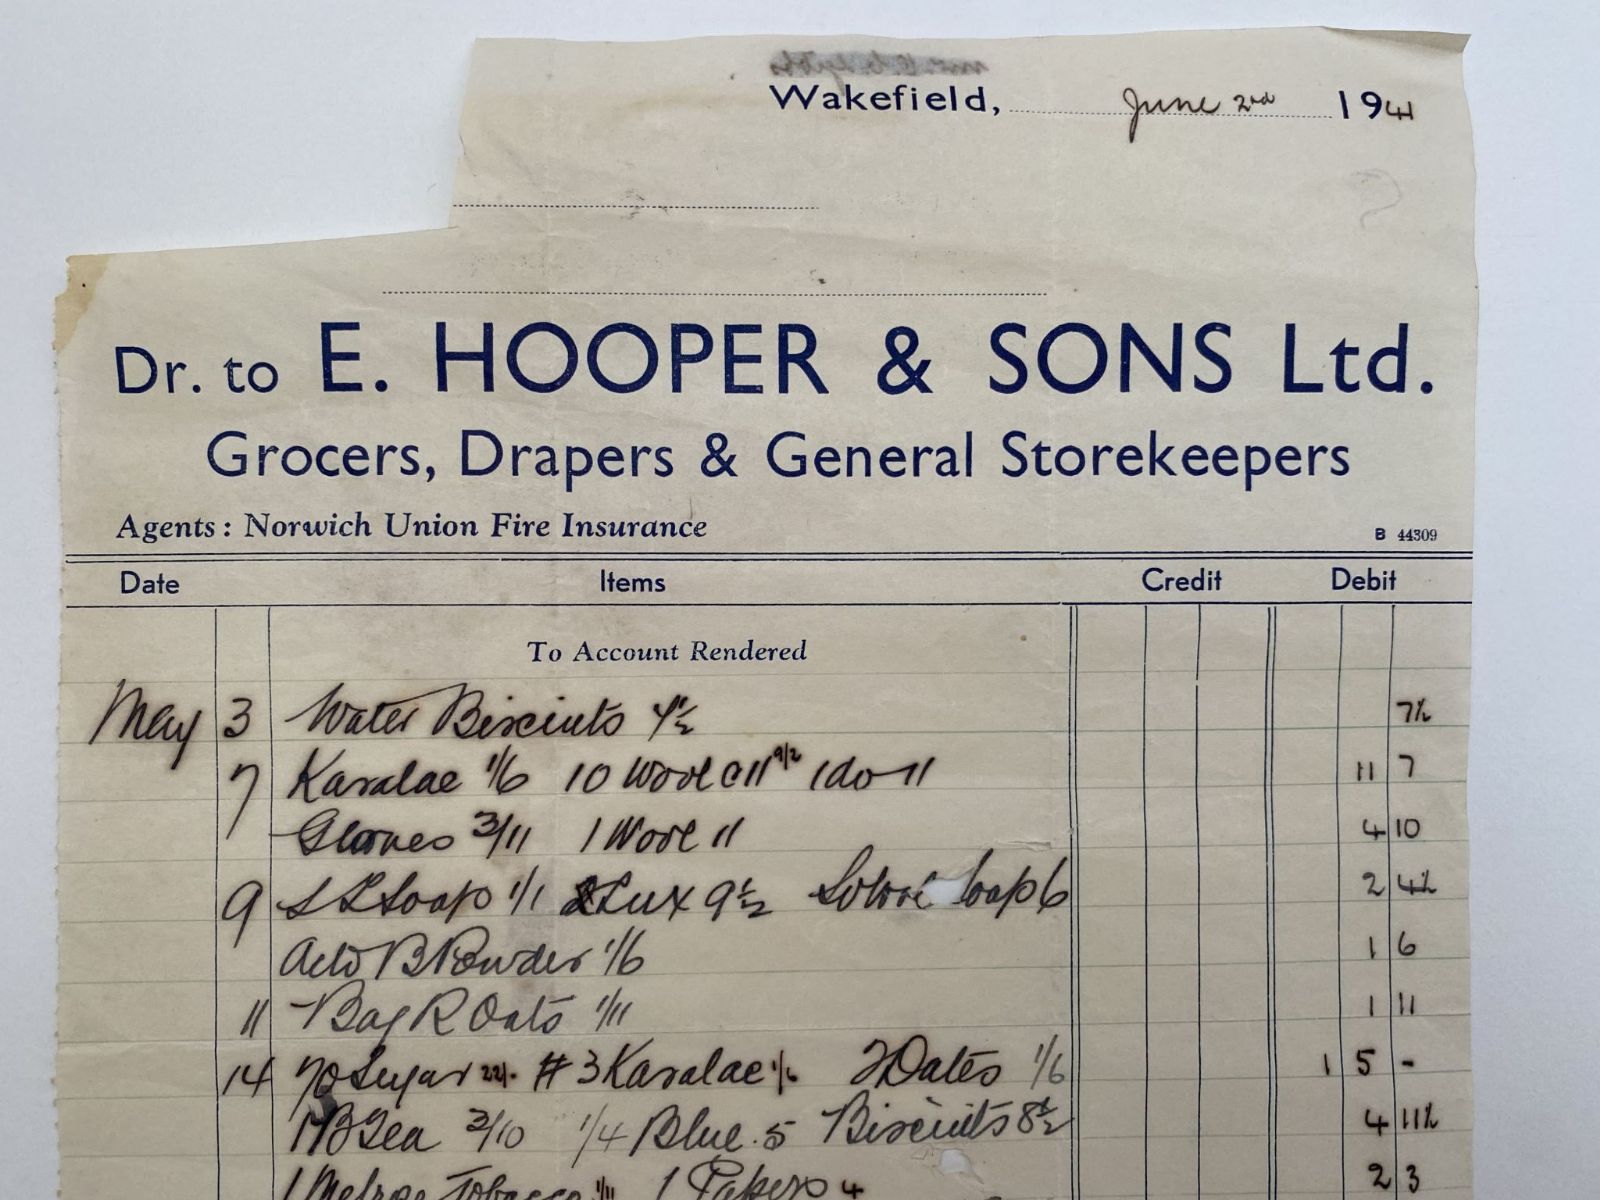 Wakefield, June 2nd 1941
Dr. to E. HOOPER & SONS Ltd.
Grocers, Drapers & General Storekeepers
Agents: Norwich Union Fire Insurance B 44309
Date Items Credit Debit
To Account Rendered
May 3 Water Biscuits 7½
7 10 Wool 9/2 1 do 11 11 7
Gloves 3/11 1 Wool 11 4 10
9 S L Soap 1/1 Lux 9½ Soap 6 2 4½
B Powder 1/6 1 6
11 Bag R Oats 1/11 1 11
14 70 Sugar 22/- # 3 1/6 2 Dates 1/6 1 5 -
Tea 3/10 1/4 Blue 5 Biscuits 8½ 4 11½
1 Melrose Tobacco 1/11 1 Papers 4 2 3